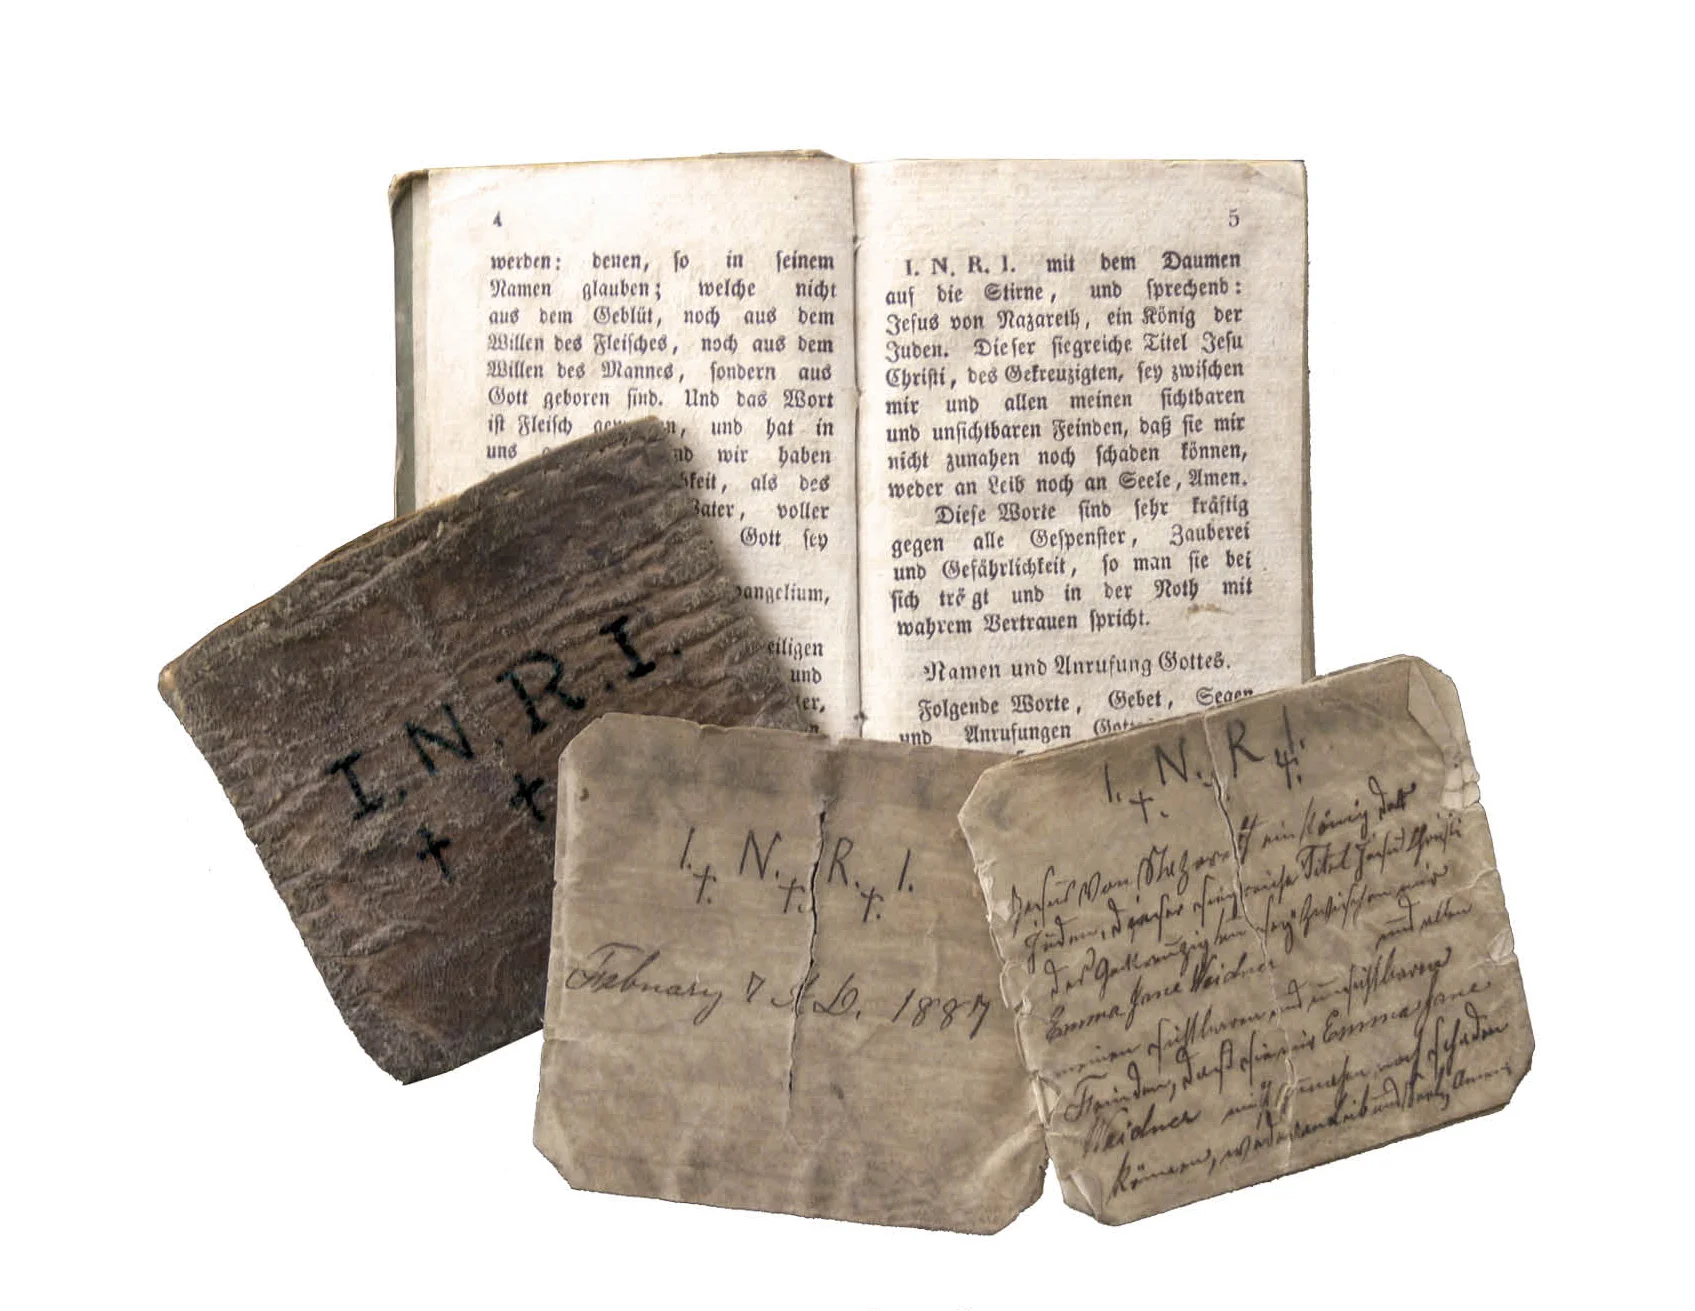 4
werden: denen, so in seinem
Namen glauben; welche nicht
aus dem Geblüt, noch aus dem
Willen des Fleisches, noch aus dem
Willen des Mannes, sondern aus
Gott geboren sind. Und das Wort
ist Fleisch und hat in
uns wir haben
als des
voller
Gott sey
und
5
I. N. R. I. mit dem Daumen
auf die Stirne, und sprechend:
Jesus von Nazareth, ein König der
Juden. Dieser siegreiche Titel Jesu
Christi, des Gekreuzigten, sey zwischen
mir und allen meinen sichtbaren
und unsichtbaren Feinden, daß sie mir
nicht zunahen noch schaden können,
weder an Leib noch an Seele, Amen.
Diese Worte sind sehr kräftig
gegen alle Gespenster, Zauberei
und Gefährlichkeit, so man sie bei
sich trägt und in der Noth mit
wahrem Vertrauen spricht.
Namen und Anrufung Gottes.
Folgende Worte, Gebet, Segen
und Anrufungen
I. N. R. I.
† †
I. † N. † R. † I.
February 7 A.D. 1887
I. † N. R. † I.
Jesus von Nazareth ein König der
Juden, dieser siegreiche Titel Jesu Christi
des Gekreuzigten sey zwischen mir
Emma Jane Weidner und allen
meinen sichtbaren und unsichtbaren
Feinden, daß sie mir Emma Jane
Weidner nicht zunahen noch schaden
können, weder an Leib und Seel, Amen